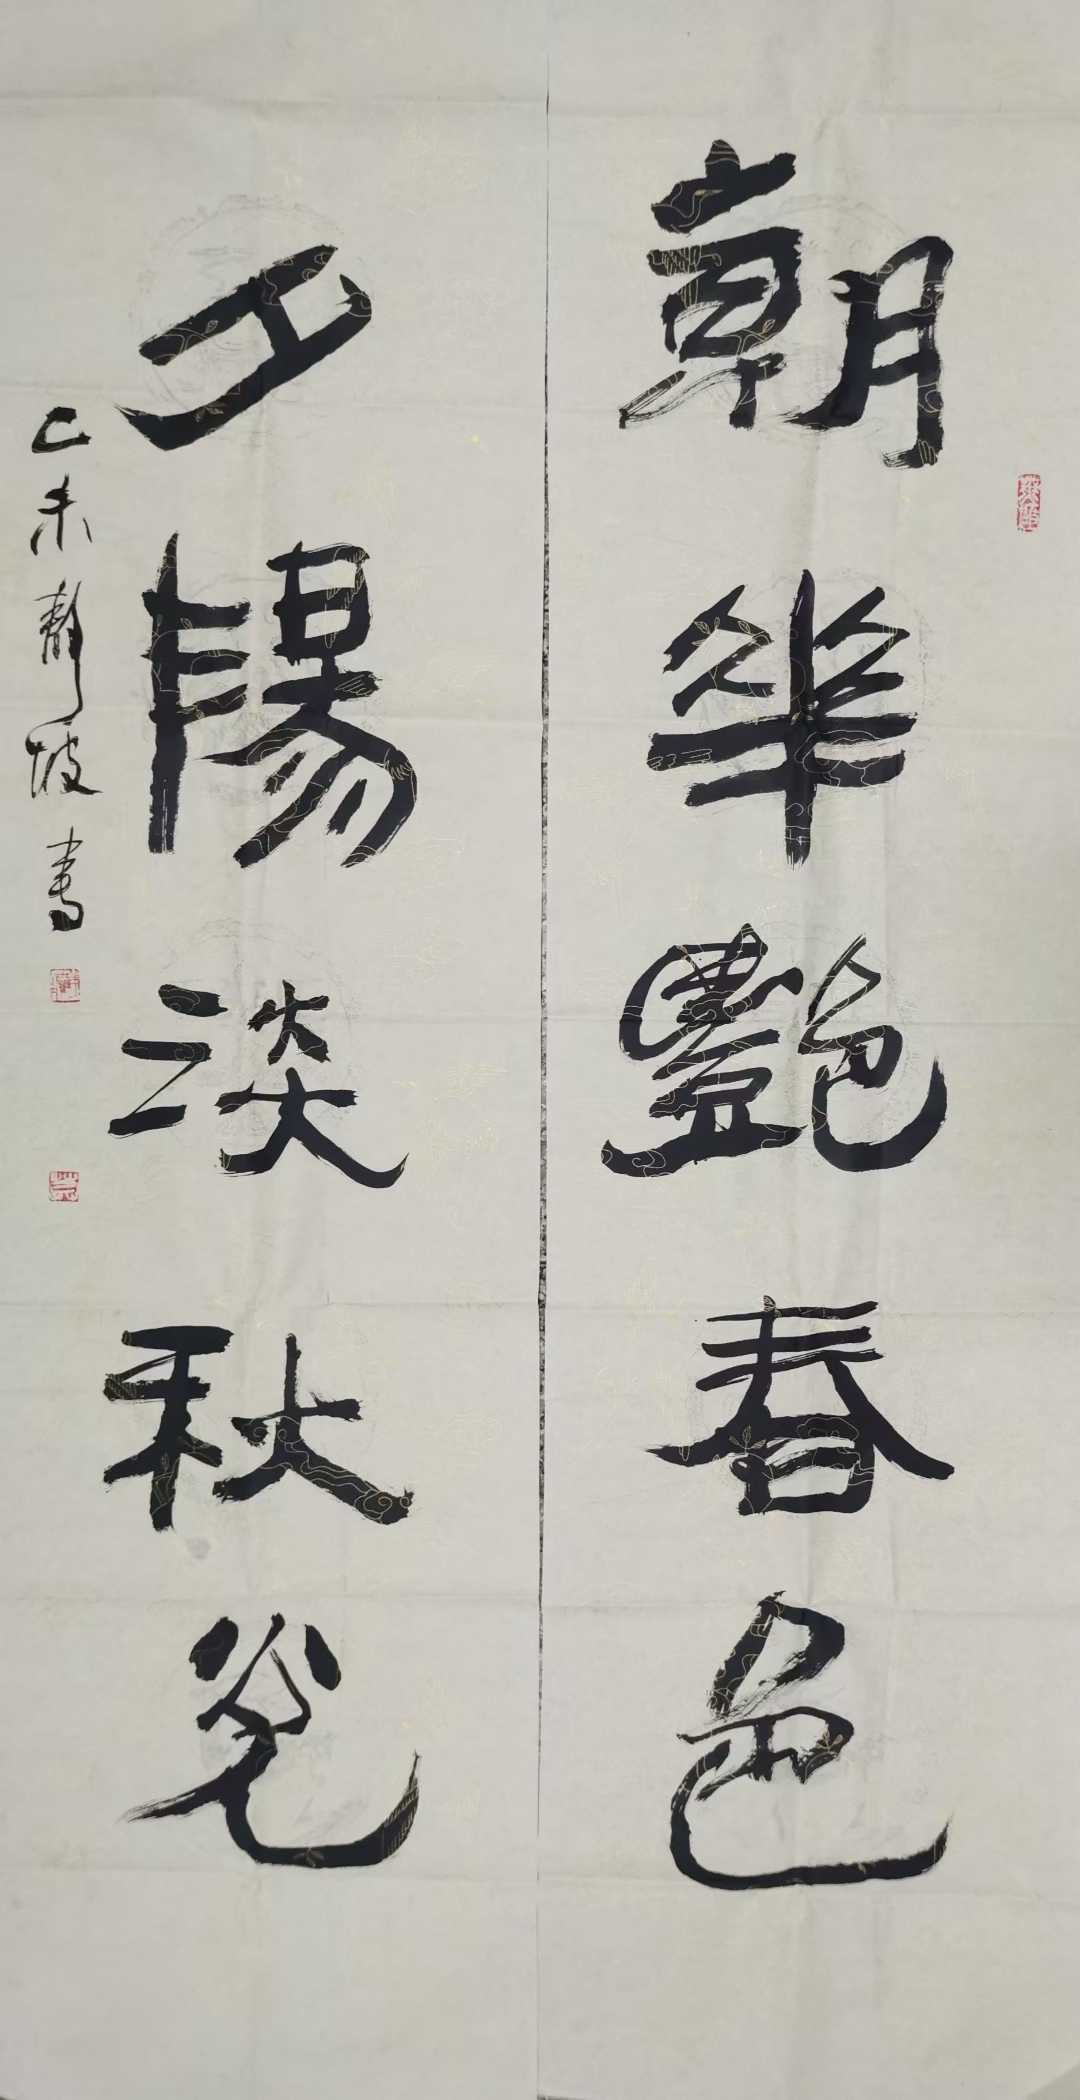 朝華艷春色
夕陽淡秋光
乙未靜坡書